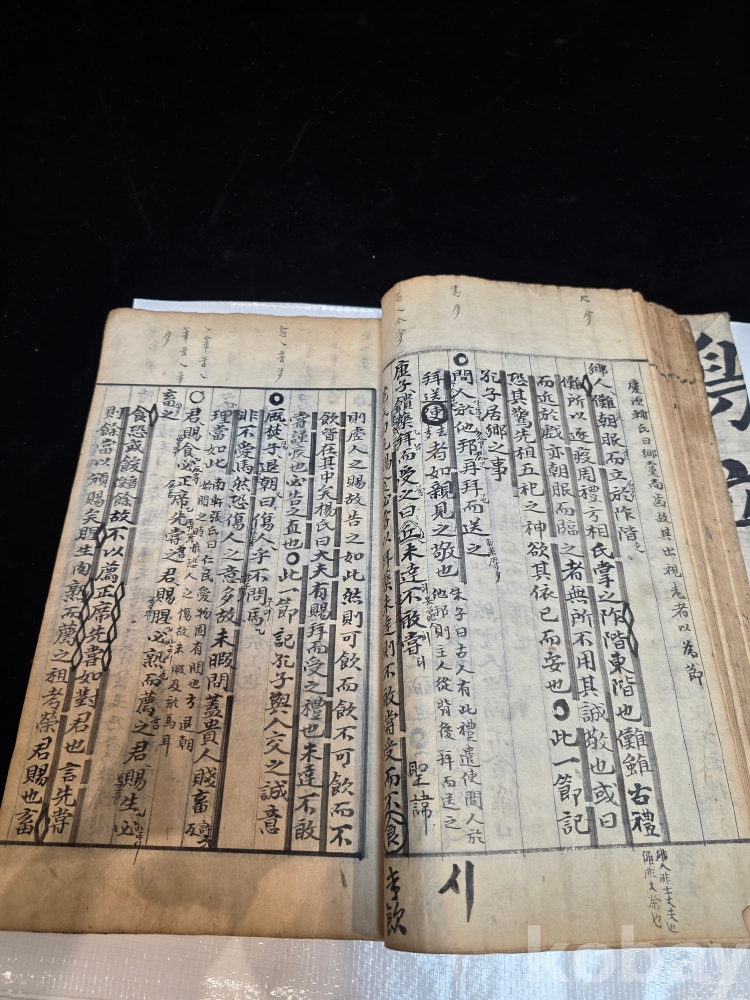 慶源輔氏曰鄉黨尚齒故其出視老者以爲節
鄉人儺朝服而立於阼階
儺所以逐疫周禮方相氏掌之阼階東階也儺雖古禮
而近於戲亦朝服而臨之者無所不用其誠敬也或曰
恐其驚先祖五祀之神欲其依已而安也○此一節記
孔子居鄉之事
○問人於他邦再拜而送之
拜送使者如親見之敬也 朱子曰古人有此禮遣使問人於
他邦則主人從背後拜而送之
康子饋藥拜而受之曰丘未達不敢嘗 聖諱
必嘗以拜藥未達則不敢嘗受而不食
시
則虛人之賜故告之如此然則可飮而飮不可飮而不
飮皆在其中矣楊氏曰大夫有賜拜而受之禮也未達不敢
嘗謹疾也必告之直也○此一節記孔子與人交之誠意
○廐焚子退朝曰傷人乎不問馬
非不愛馬然恐傷人之意多故未暇問蓋貴人賤畜
理當如此 南軒張氏曰仁民愛物固有間也方退朝
始聞之時惟恐人之傷故未暇及於馬耳
○君賜食必正席先嘗之君賜腥必熟而薦之君賜生必
畜之
食恐或餕餘故不以薦正席先嘗如對君也言先嘗
則餘當以頒賜矣腥生肉熟而薦之祖考榮君賜也畜
kobay